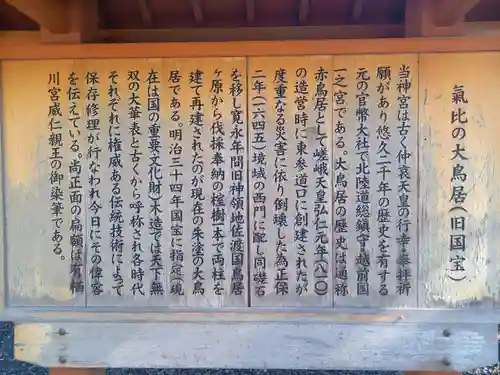 氣比の大鳥居(旧国宝)
当神宮は古く仲哀天皇の行幸奉拝祈
願があり悠久二千年の歴史を有する
元の官幣大社で北陸道総鎮守越前国
一之宮である。大鳥居の歴史は通称
赤鳥居として嵯峨天皇弘仁元年(八一〇)
の造営時に東参道口に創建されたが
度重なる災害に依り倒壊した為正保
二年(一六四五)境域の西門に配し同礎石
を移し寛永年間旧神領地佐渡国鳥居
ヶ原から伐採奉納の榁樹一本で両柱を
建て再建されたのが現在の朱塗の大鳥
居である。明治三十四年国宝に指定(現
在は国の重要文化財)木造では天下無
双の大華表と古くから呼称され各時代
それぞれに権威ある伝統技術によって
保存修理が行なわれ今日にその偉容
を伝えている。尚正面の扁額は有栖
川宮威仁親王の御染筆である。